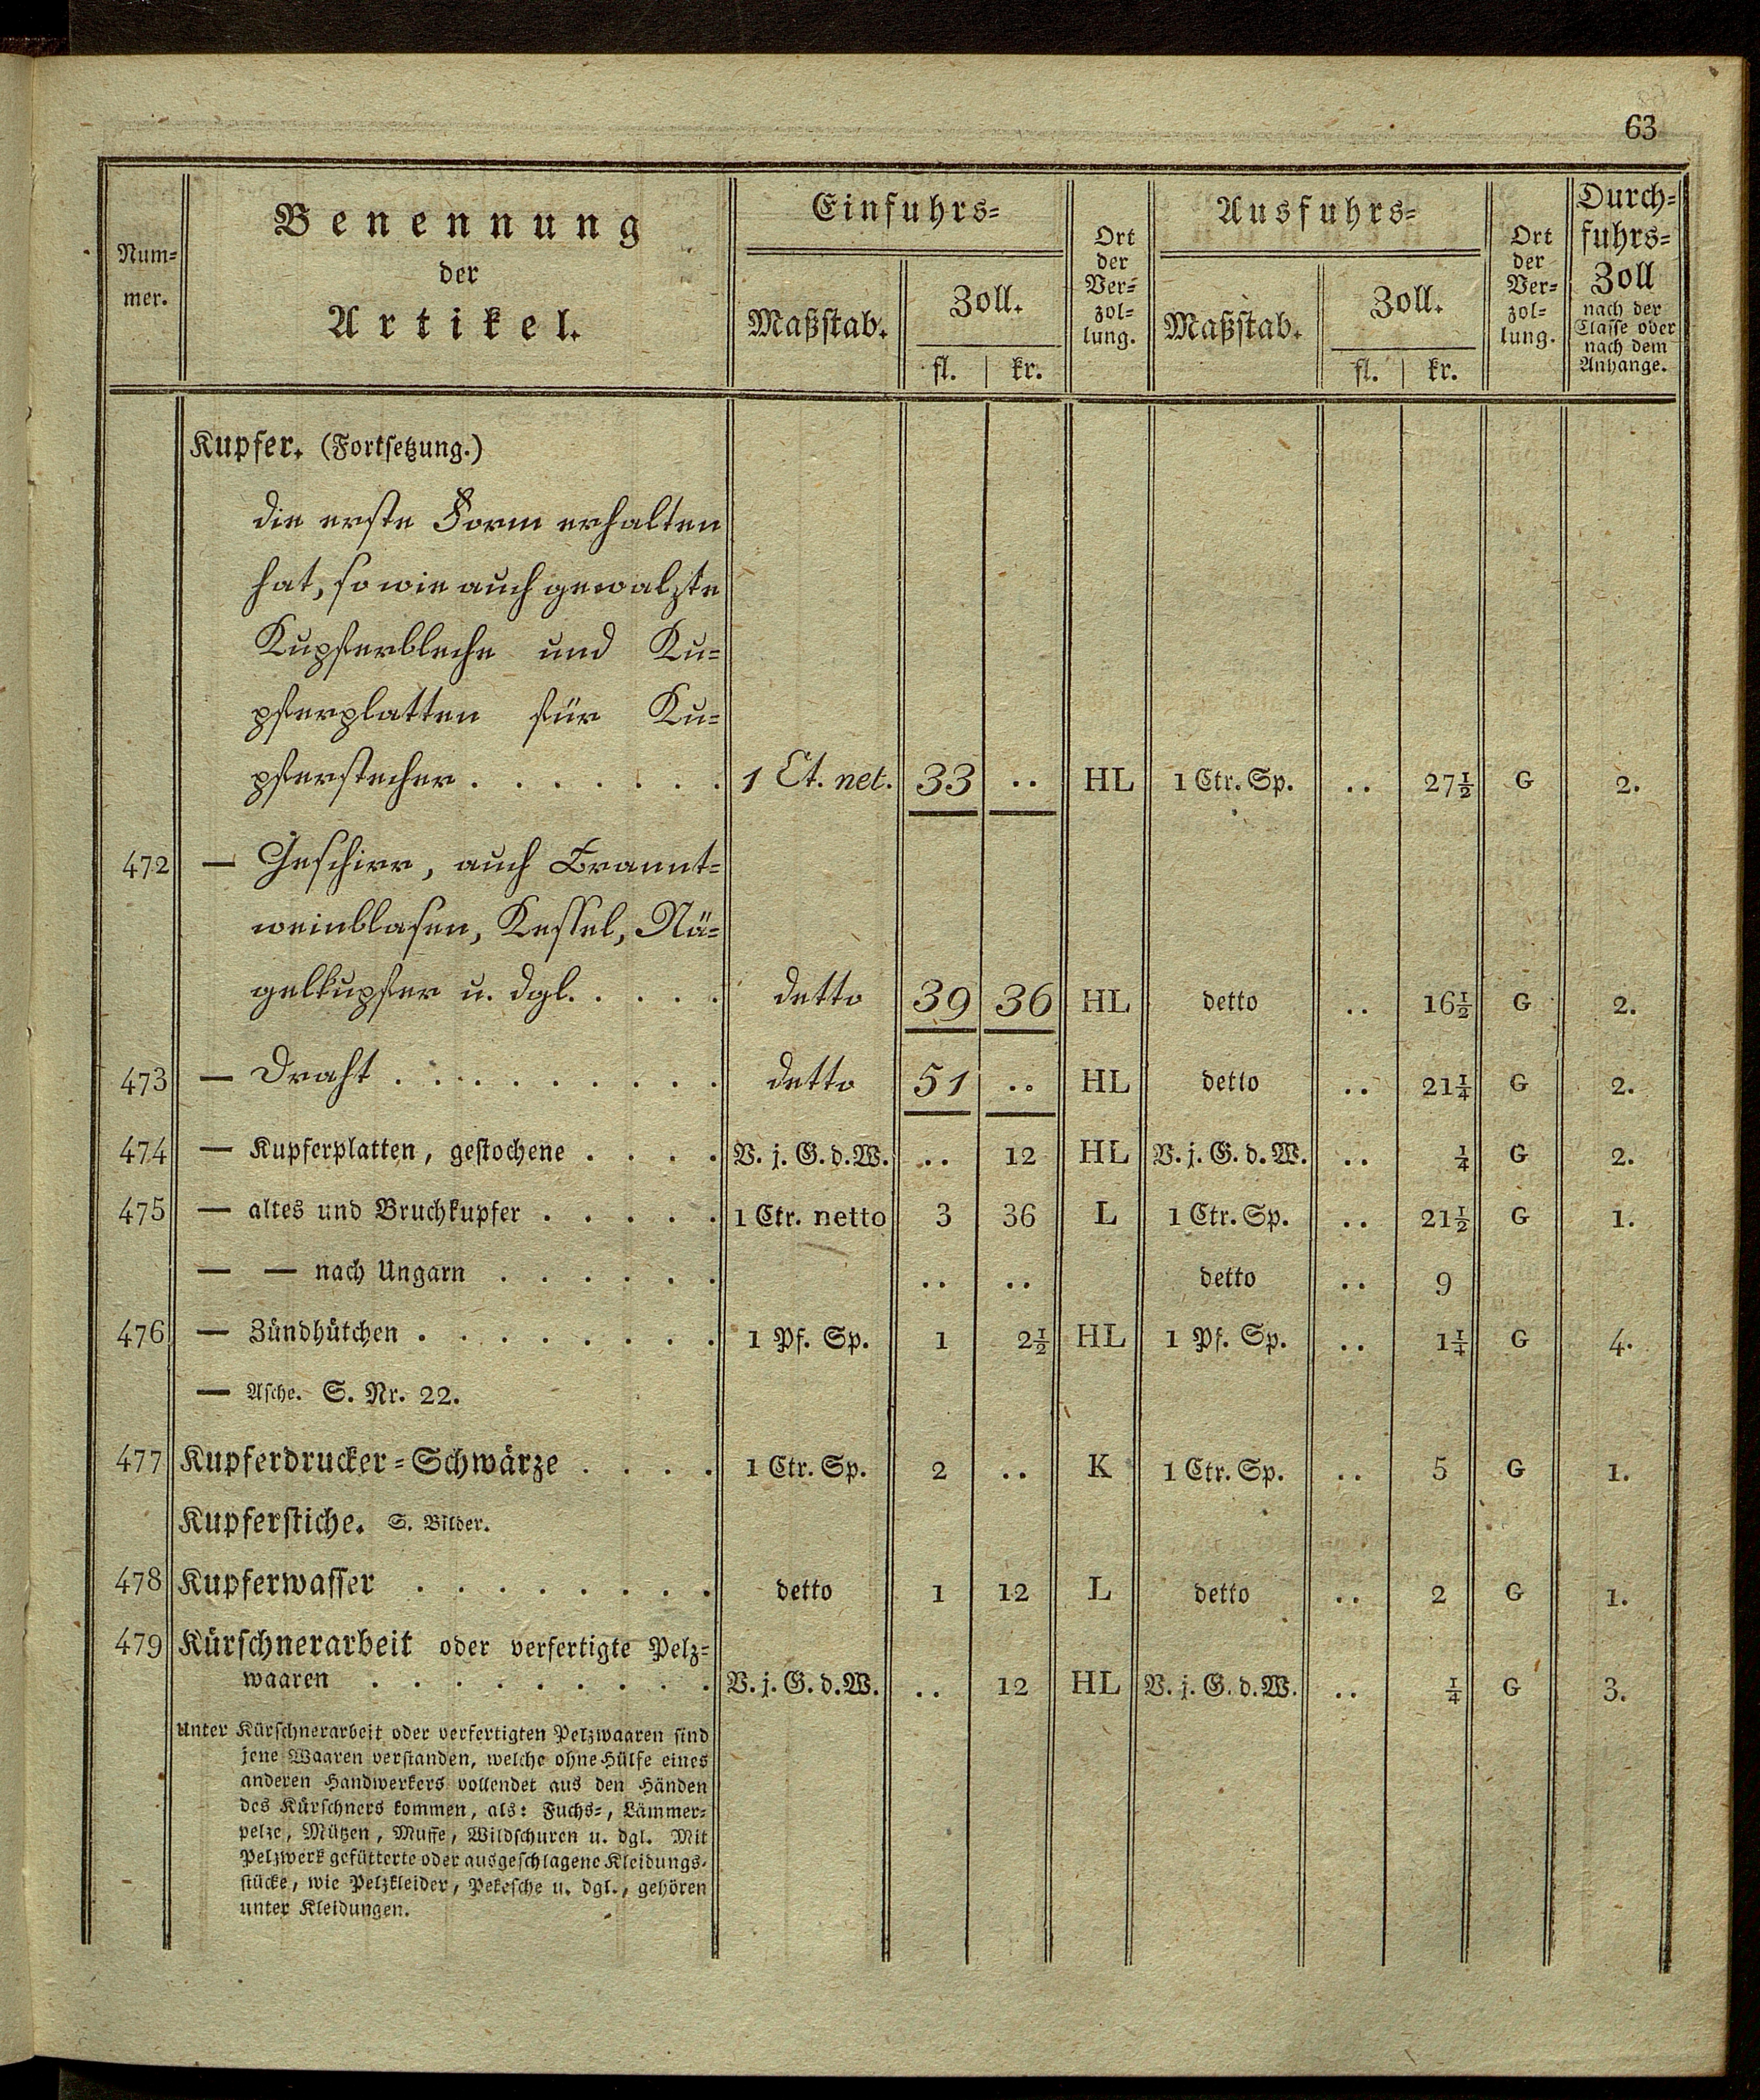 63
Num-
mer.
Benennung
der
Artikel.
Einfuhrs-
Maßstab.
Zoll.
fl. | kr.
Ort
der
Ver-
zol-
lung.
Ausfuhrs-
Maßstab.
Zoll.
fl. | kr.
Ort
der
Ver-
zol-
lung.
Durch-
fuhrs-
Zoll
nach der
Classe oder
nach dem
Anhange.
Kupfer. (Fortsetzung.)
die erste Form erhalten
hat, so wie auch gewalzte
Kupferbleche und Ku-
pferplatten für Ku-
pferstecher . . . . . . . 1 Ct. net. 33 .. HL 1 Ctr. Sp. .. 27½ G 2.
472 — Geschirr, auch Brannt-
weinblasen, Kessel, Nä-
gelkupfer u. dgl. . . . . detto 39 36 HL detto .. 16½ G 2.
473 — Draht . . . . . . . . . detto 51 .. HL detto .. 21¼ G 2.
474 — Kupferplatten, gestochene . . . . V. j. G. d. W. .. 12 HL V. j. G. d. W. .. ¼ G 2.
475 — altes und Bruchkupfer . . . . . 1 Ctr. netto 3 36 L 1 Ctr. Sp. .. 21½ G 1.
— — nach Ungarn . . . . . . .. .. detto .. 9
476 — Zündhütchen . . . . . . . . 1 Pf. Sp. 1 2½ HL 1 Pf. Sp. .. 1¼ G 4.
— Asche. S. Nr. 22.
477 Kupferdrucker-Schwärze . . . . 1 Ctr. Sp. 2 .. K 1 Ctr. Sp. .. 5 G 1.
Kupferstiche. S. Bilder.
478 Kupferwasser . . . . . . . . detto 1 12 L detto .. 2 G 1.
479 Kürschnerarbeit oder verfertigte Pelz-
waaren . . . . . . . . . V. j. G. d. W. .. 12 HL V. j. G. d. W. .. ¼ G 3.
Unter Kürschnerarbeit oder verfertigten Pelzwaaren sind
jene Waaren verstanden, welche ohne Hülfe eines
anderen Handwerkers vollendet aus den Händen
des Kürschners kommen, als: Fuchs-, Lämmer-
pelze, Mützen, Muffe, Wildschuren u. dgl. Mit
Pelzwerk gefütterte oder ausgeschlagene Kleidungs-
stücke, wie Pelzkleider, Pekesche u. dgl., gehören
unter Kleidungen.